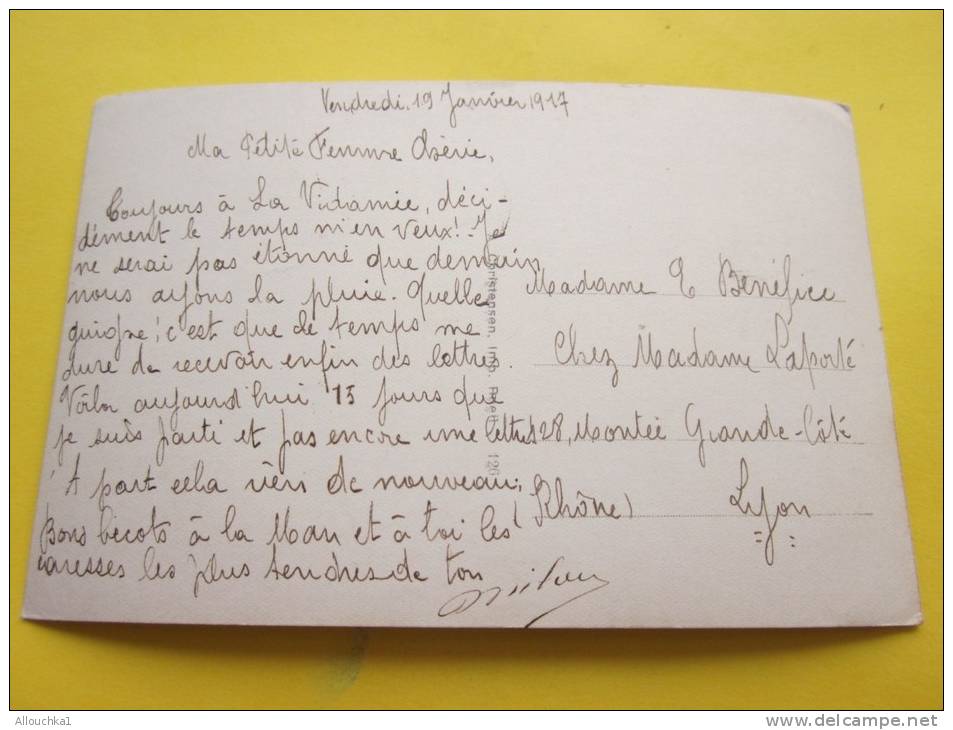 Vendredi 19 Janvier 1917
Ma Petite Femme Chérie,
Toujours à La Vidamie, déci-
dément le temps m'en veux! Je
ne serai pas étonné que demain
nous ayons la pluie. Quelle
guigne! c'est que le temps me
dure de recevoir enfin des lettres.
Voilà aujourd'hui 15 jours que
je suis parti et pas encore une lettre!
A part cela rien de nouveau;
Bons bécots à la Man et à toi les
caresses les plus tendres de ton
Madame E Bénéfice
Chez Madame Laporte
128, Montée Grande-Côte
(Rhône) Lyon
Christensen, Imp.
Allouchka1
www.delcampe.net